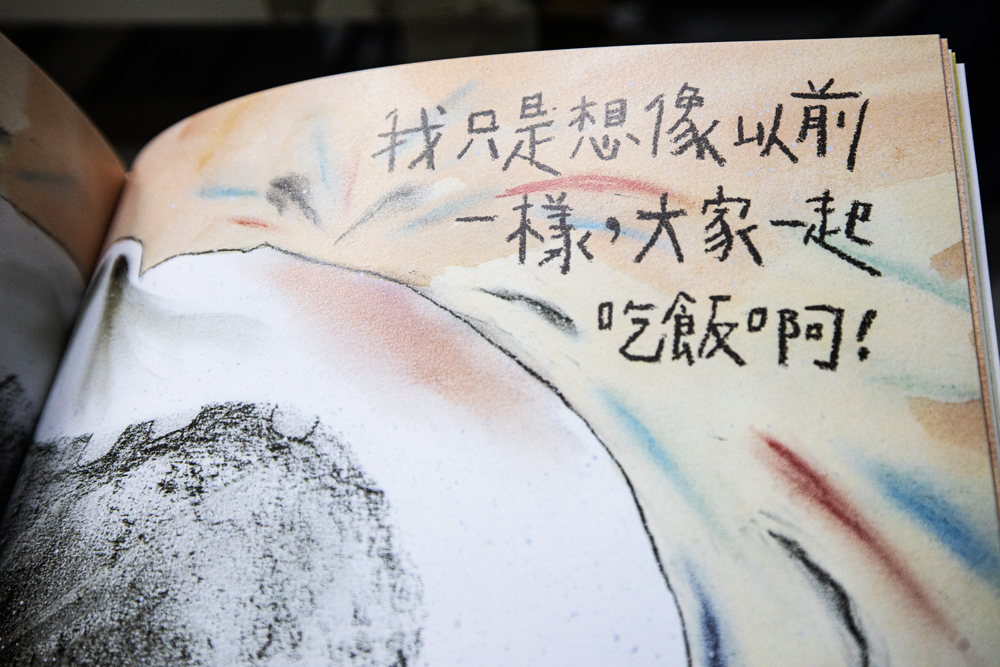 我只是想像以前
一樣,大家一起
吃飯啊!